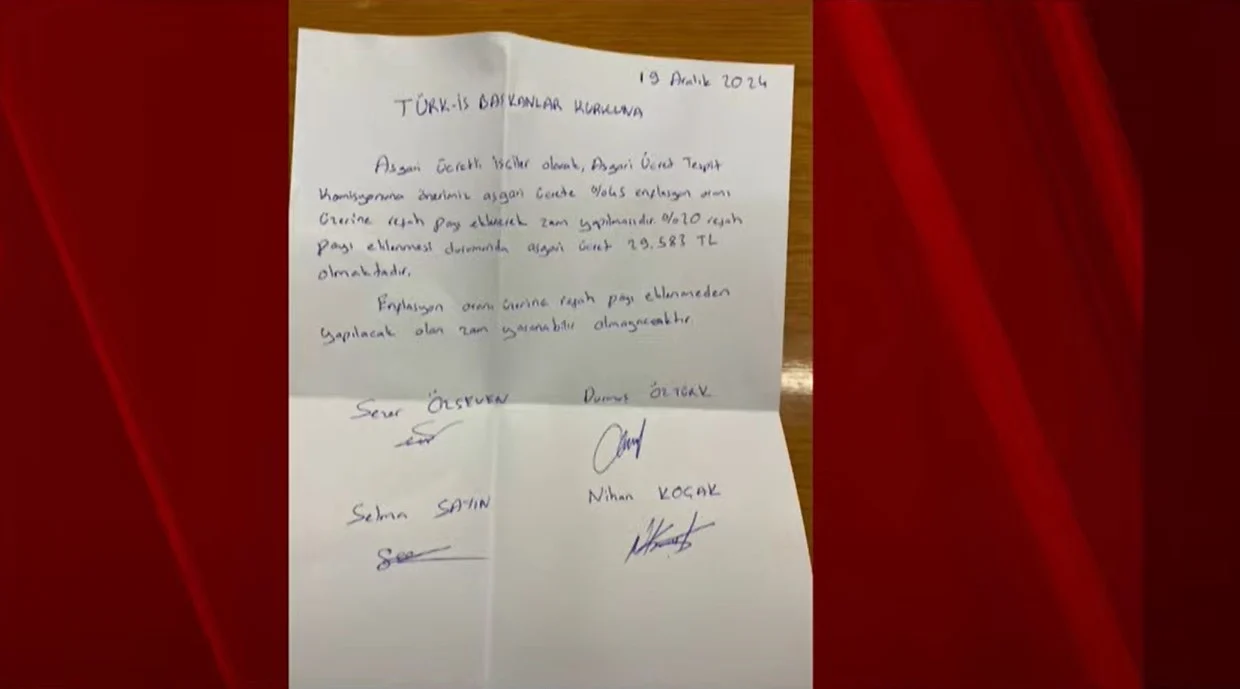 19 Aralık 2024
TÜRK-İS BAŞKANLAR KURULUNA
Asgari ücretli işciler olarak, Asgari Ücret Tespit
Komisyonuna önerimiz asgari ücrete %45 enflasyon oranı
üzerine refah payı eklenerek zam yapılmalıdır. %20 refah
payı eklenmesi durumunda asgari ücret 29.583 TL
olmaktadır.
Enflasyon oranı üzerine refah payı eklenmeden
yapılacak olan zam yaşanabilir olmayacaktır.
Sezer ÖZSEVEN Durmuş ÖZTÜRK
Selma SAYIN Nihan KOÇAK